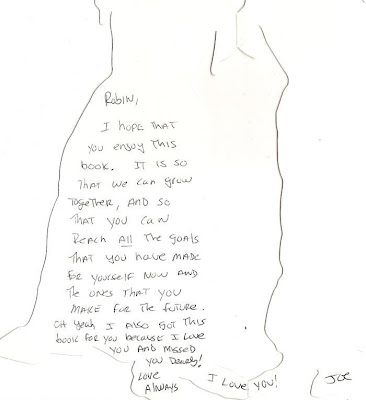 Robin,
I hope that
you enjoy this
book. It is so
that we can grow
together, and so
that you can
Reach All the goals
that you have made
for yourself now and
the ones that you
make for the future.
Oh yeah I also got this
book for you because I love
you and missed
you Dearly!
Love
Always
I Love You!
Joe